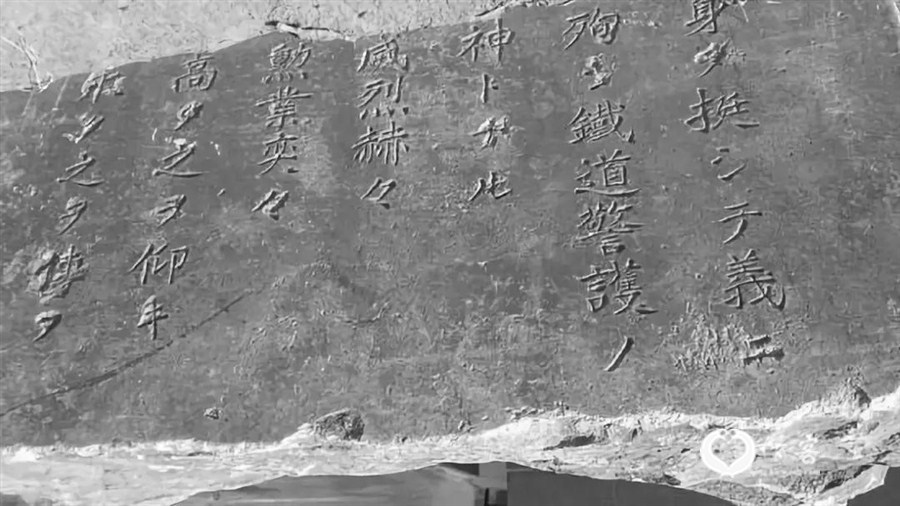 身ヲ挺シテ義ニ
殉ヨ鐵道警護ノ
神トナル
威烈赫々
勲業奕々
高ク之ヲ仰キ
ク之ヲ傳フ